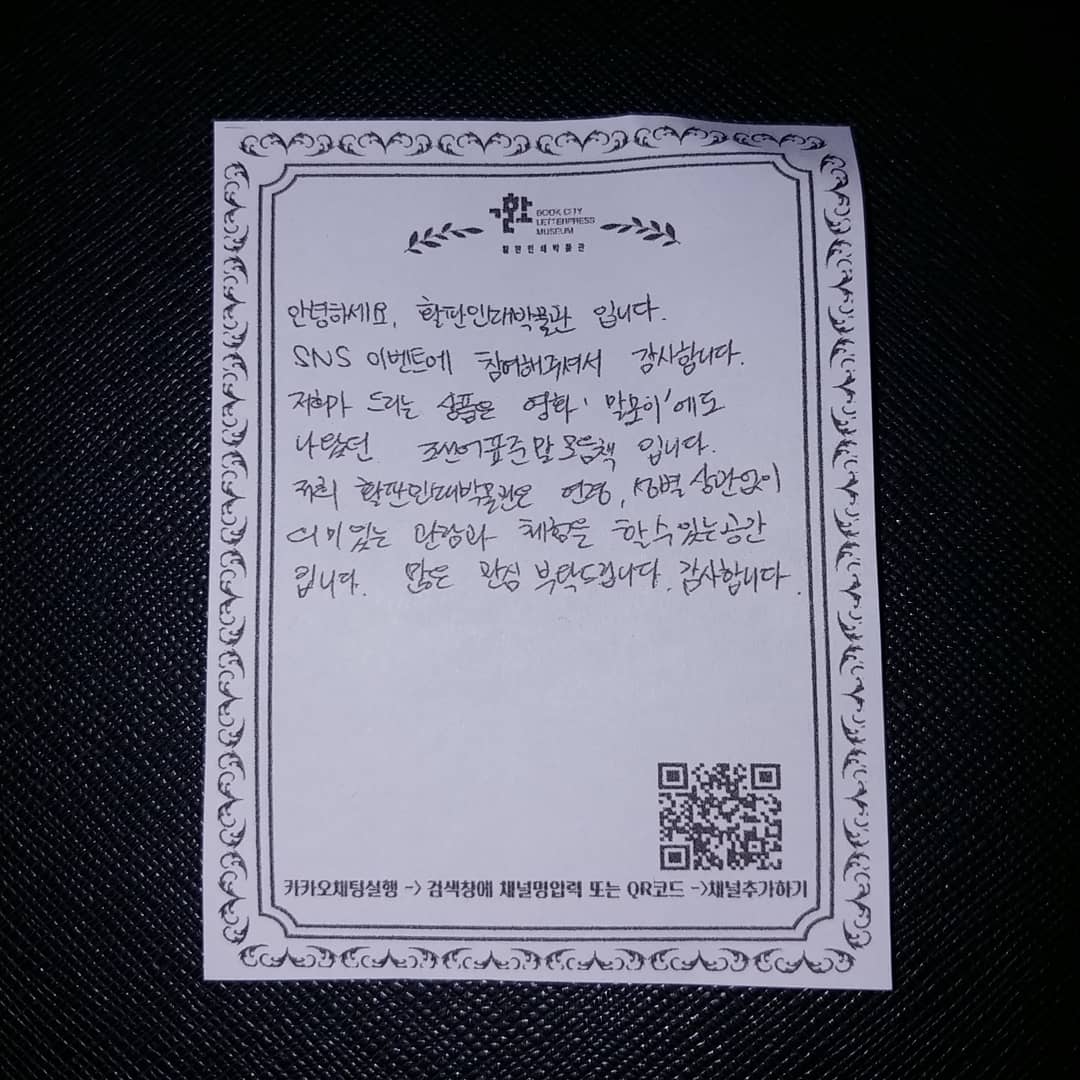 활
BOOK CITY
LETTERPRESS
MUSEUM
활판인쇄박물관
안녕하세요, 활판인쇄박물관 입니다.
SNS 이벤트에 참여해주셔서 감사합니다.
저희가 드리는 상품은 영화 '말모이'에도
나왔던 조선어표준말모음책 입니다.
저희 활판인쇄박물관은 연령, 성별 상관없이
의미있는 관람과 체험을 할 수 있는 공간
입니다. 많은 관심 부탁드립니다. 감사합니다.
카카오채팅실행 -> 검색창에 채널명입력 또는 QR코드 ->채널추가하기